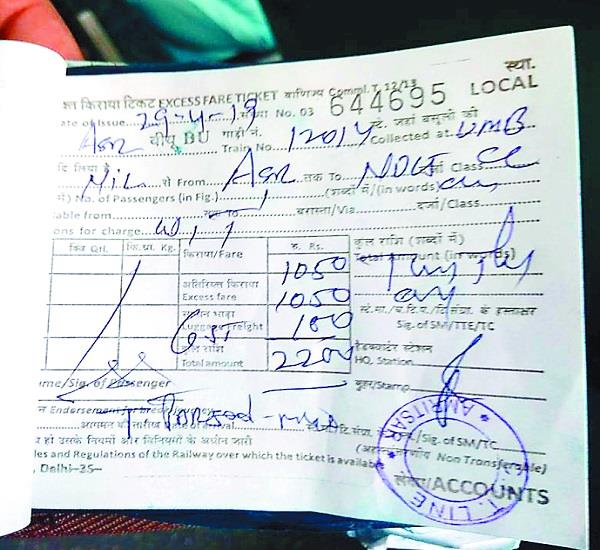 स्था.
श्त किराया टिकट EXCESS FARE TICKET वाणिज्य Comml. T. 12/13 LOCAL
ate of Issue 29-4-19 संख्या No. 03 644695
Asr बीयू BU गाड़ी नं. Train No. 12014 स्टे. जहां वसूली की Collected at UMB
दि लिया है Nil से From Asr तक To NDLS दर्जा Class CC
में) No. of Passengers (in Fig.) 1 (शब्दों में/(in words)
lable from तक To बरास्ता/Via दर्जा/Class
ons for charge W/T
क्विं Qtl. कि.ग्रा. Kg. किराया/Fare रु. Rs. कुल राशि (शब्दों में)
1050 Total Amount (in words)
अतिरिक्त किराया
Excess fare 1050
स्टे.मा./च.टि.प./टि.संग्रा. के हस्ताक्षर
सामान भाड़ा Sig. of SM/TTE/TC
Luggage Freight GST 100
कुल राशि हैडक्वार्टर स्टेशन
Total amount 2200 HQ, Station
ame/Sig. of Passenger मुहर/Stamp
न Endorsement for break journey
आगमन की तारीख Date of arrival टि.संग्रा. /Sig. of SM/TC
व हो उसके नियमों और विनियमों के अधीन जारी (अहस्तांतरणीय Non Transferable)
les and Regulations of the Railway over which the ticket is available
, Delhi-35- लेखा/ACCOUNTS
LINE AMRITSAR